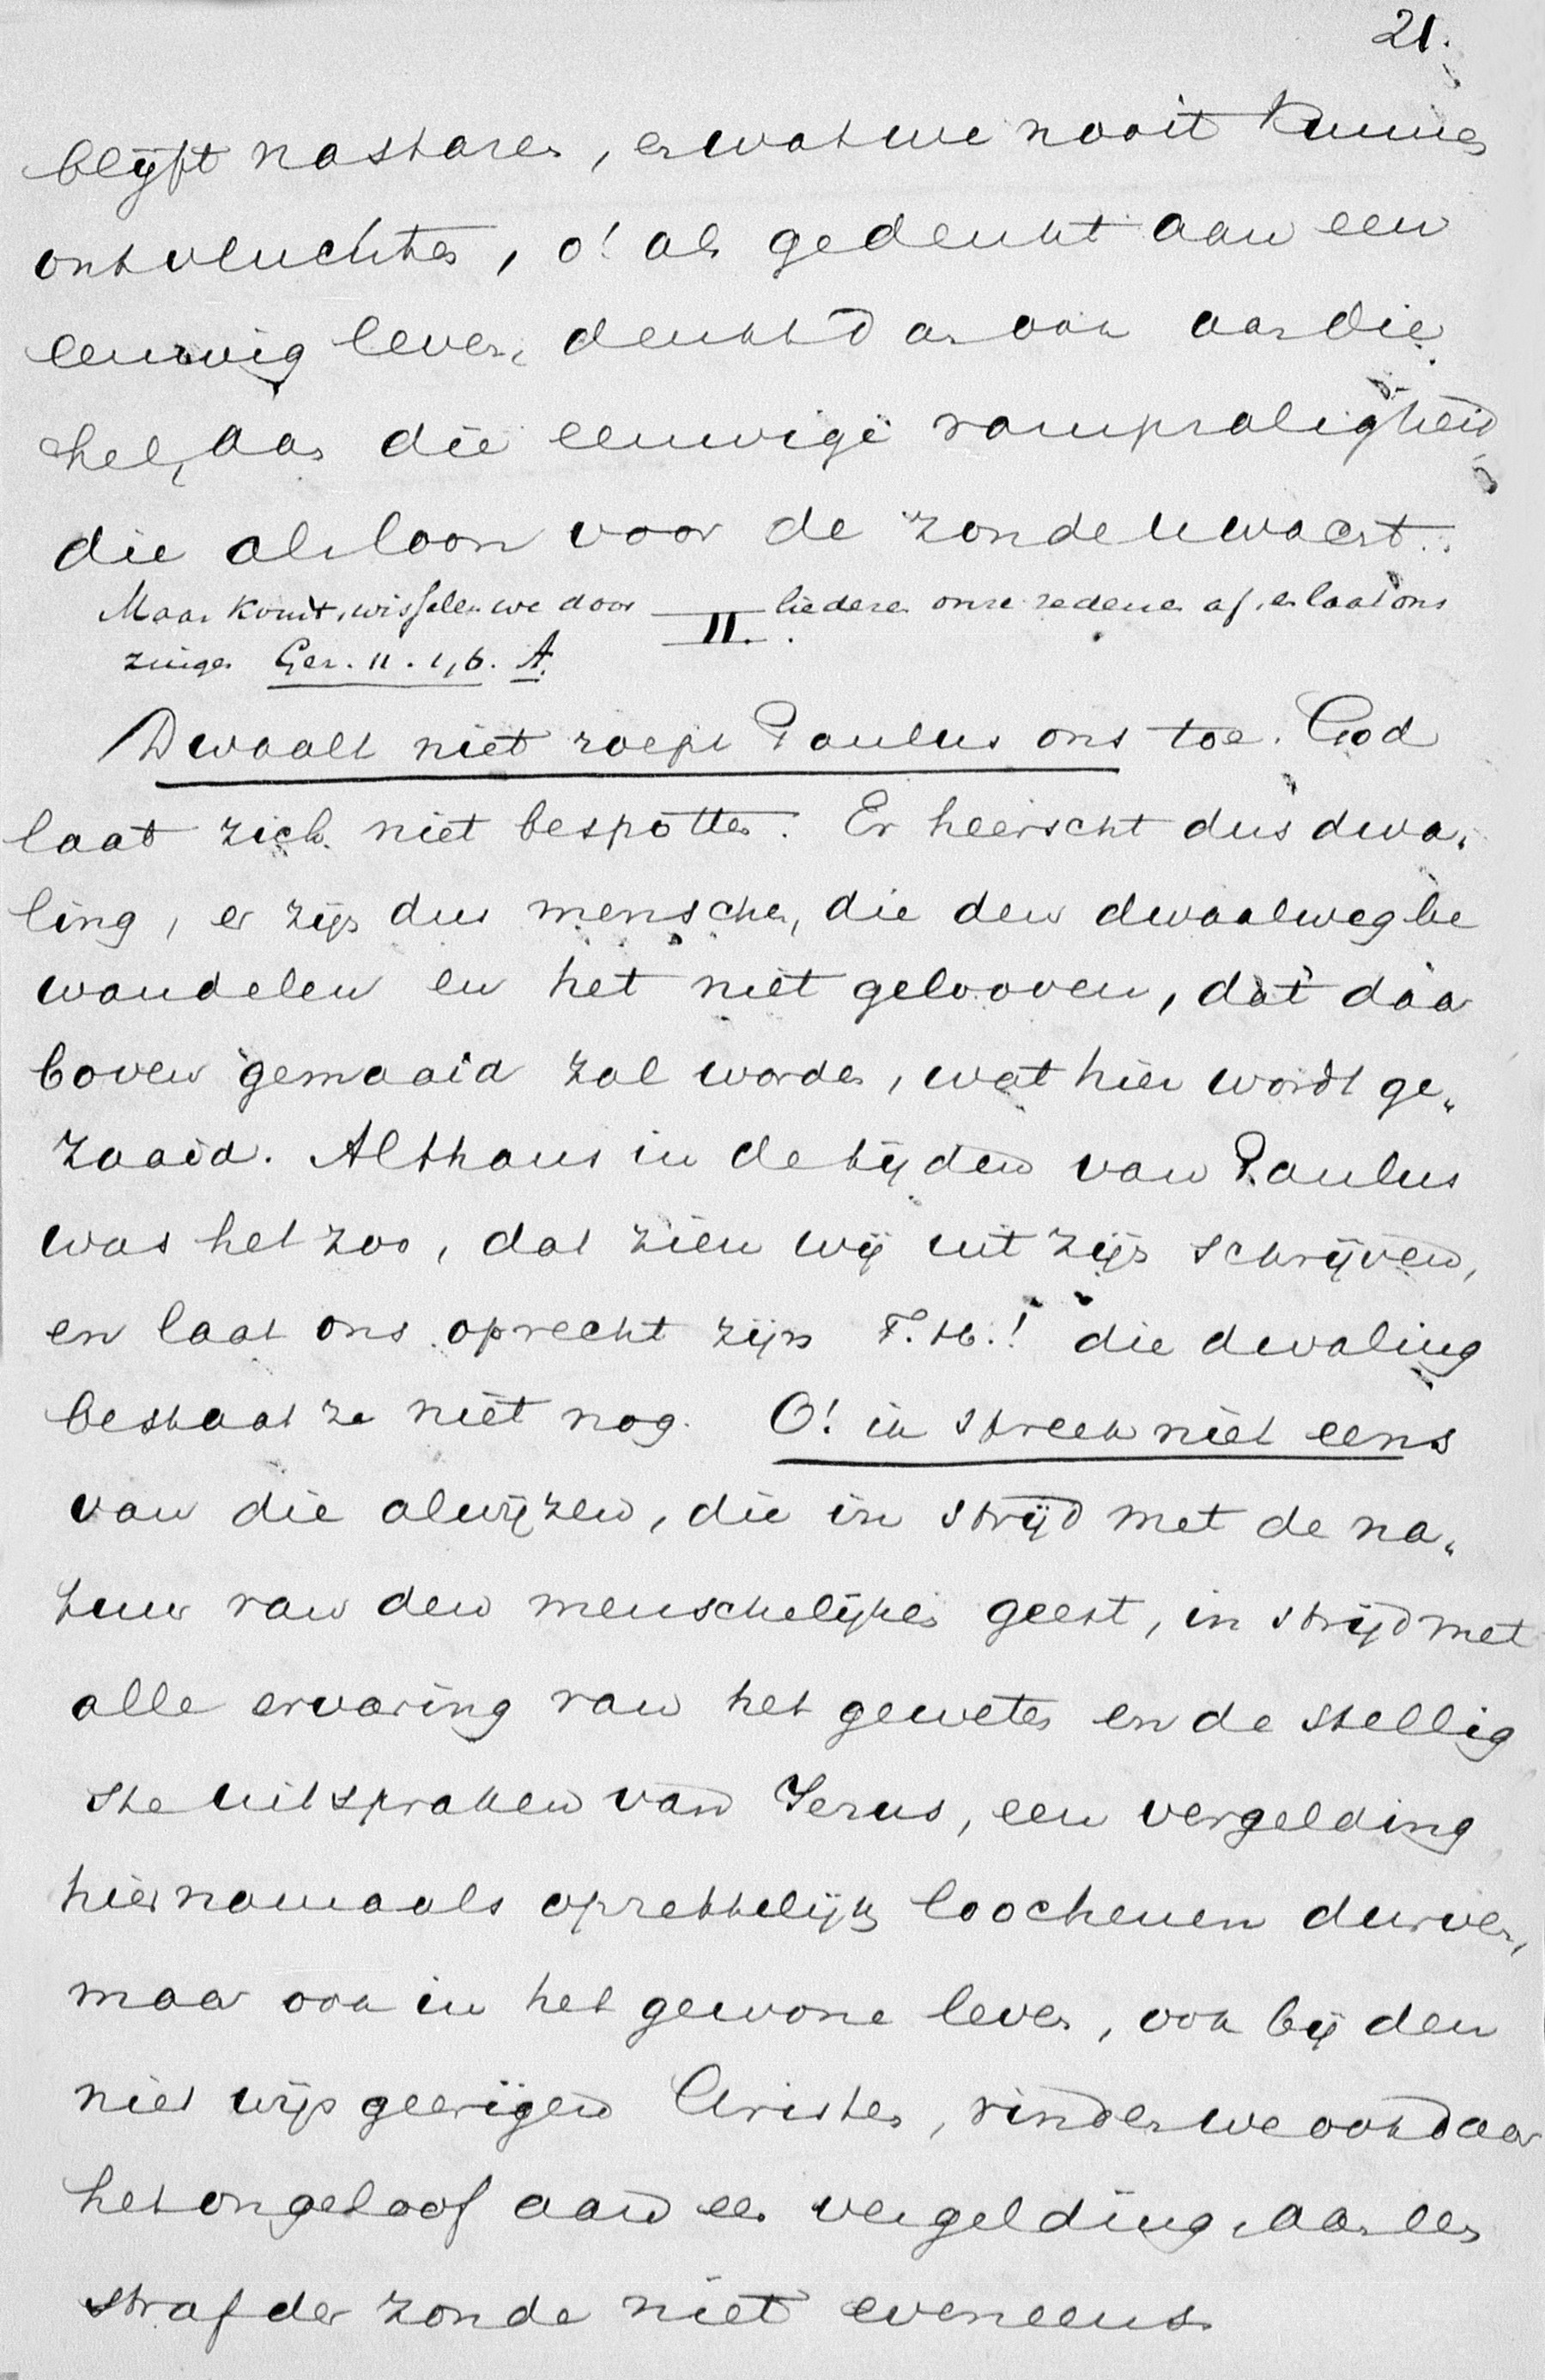 21.
blijft nastaren, en wat we nooit kunnen
ontvluchten, o! als gedenkt aan een
eeuwig leven, denkt dan ook aan die
hel, aan die eeuwige rampzaligheid
die als loon voor de zonde u wacht.
Maar komt, wisselen we door liederen onze redenen af, en laat ons
II.
zingen Gez. 11. 1, 6. A.
Dwaalt niet roept Paulus ons toe. God
laat zich niet bespotten. Er heerscht dus dwa„
ling, er zijn dus menschen, die den dwaalweg be
wandelen en het niet gelooven, dat daar
boven gemaaid zal worden, wat hier wordt ge„
zaaid. Althans in de tijden van Paulus
was het zoo, dat zien wij uit zijn schrijven,
en laat ons oprecht zijn T. H.! die dwaling
bestaat ze niet nog. O! ik spreek niet eens
van die alwijzen, die in strijd met de na„
tuur van den menschelijken geest, in strijd met
alle ervaring van het geweten en de stellig
ste uitspraken van Jezus, een vergelding
hiernamaals opzettelijk loochenen durven,
maar ook in het gewone leven, ook bij den
niet wijsgeerigen Christen, vinden we ook daar
het ongeloof aan een vergelding, aan een
straf der zonde niet eveneens